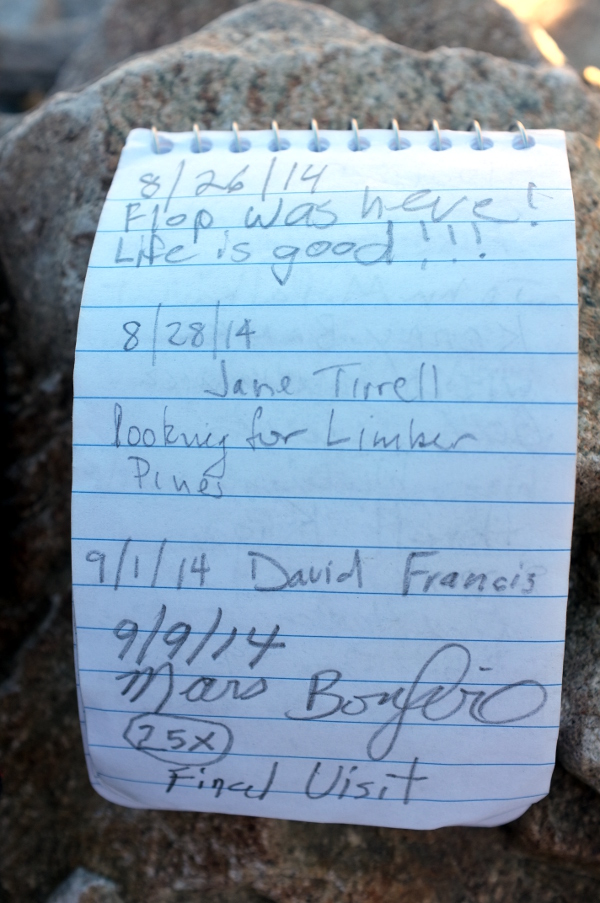 8/26/14
Flop was here!
Life is good!!!
8/28/14
Jane Tirrell
looking for Limber
Pines
9/1/14 David Francis
9/9/14
Mars Bonfire
25x
Final Visit